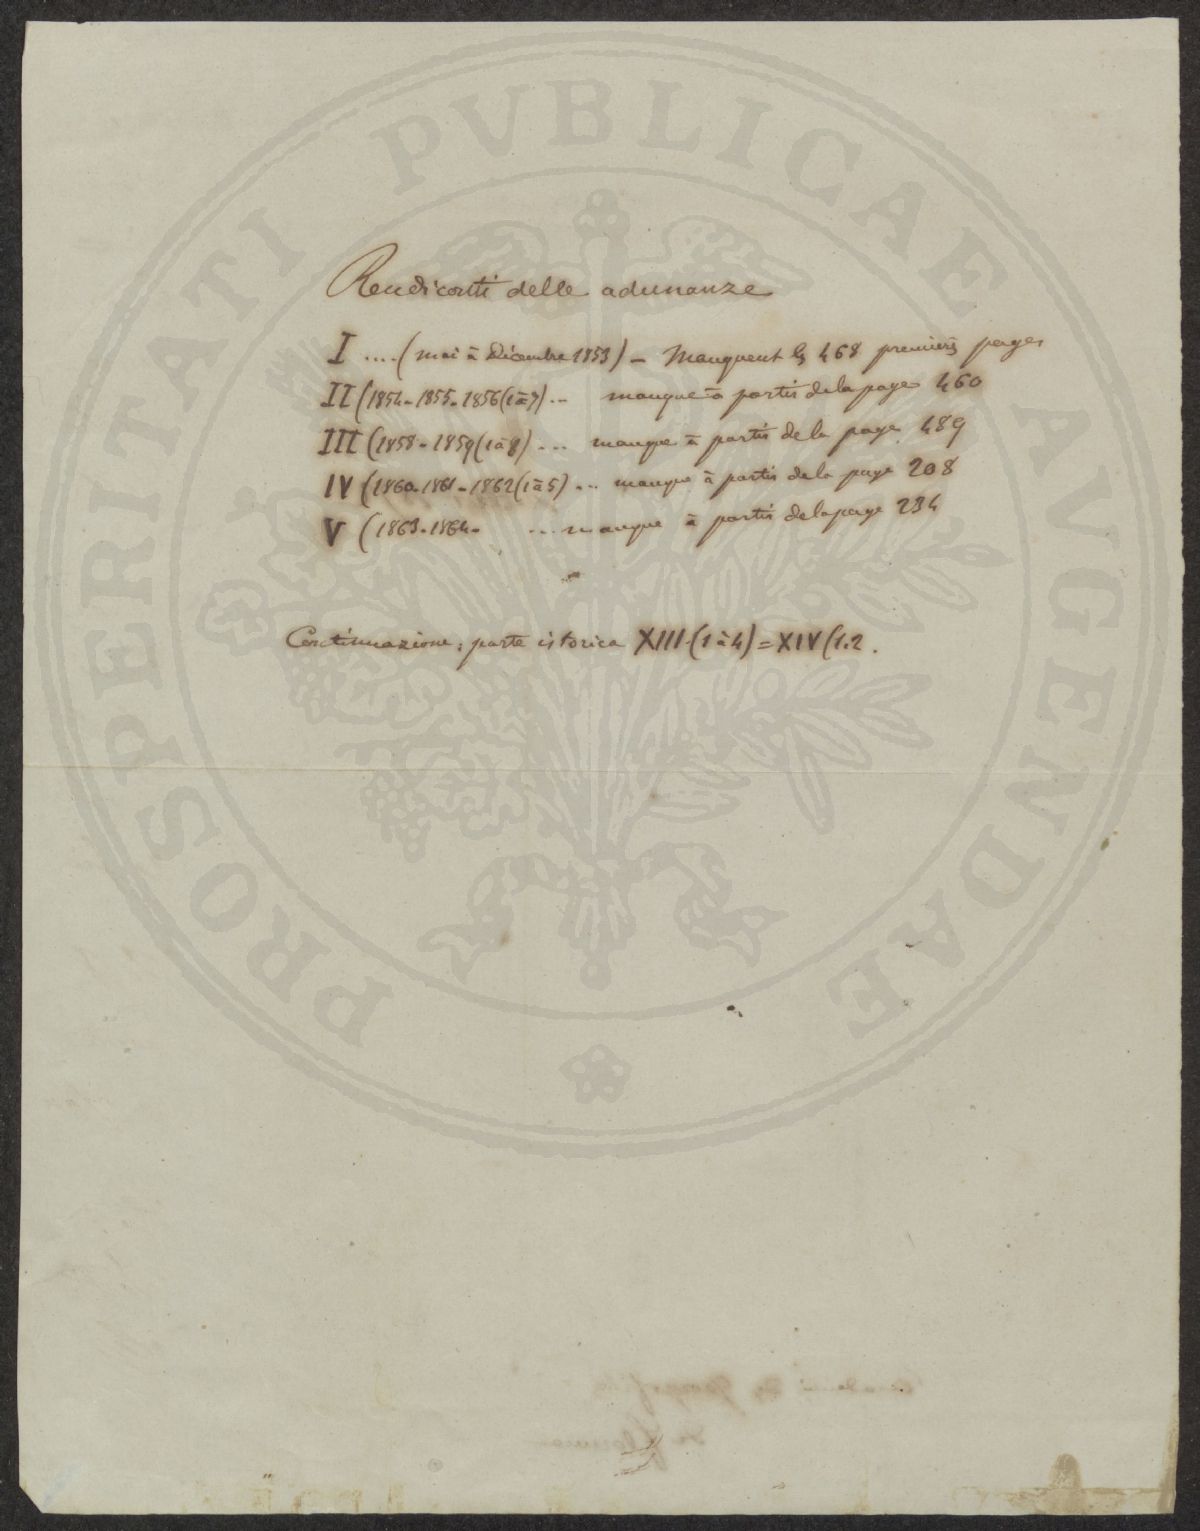 PROSPERITATI PVBLICAE AVGENDAE
Rendiconti delle adunanze
I .... (mai à Décembre 1853) - Manquent les 468 premières pages
II (1854-1855-1856 (1 à 7) ... manque à partir de la page 460
III (1858-1859 (1 à 8) ... manque à partir de la page 489
IV (1860-1861-1862 (1 à 5) ... manque à partir de la page 208
V (1863-1864- ... manque à partir de la page 234
Continuazione; parte istorica XIII (1 à 4) = XIV (1.2.